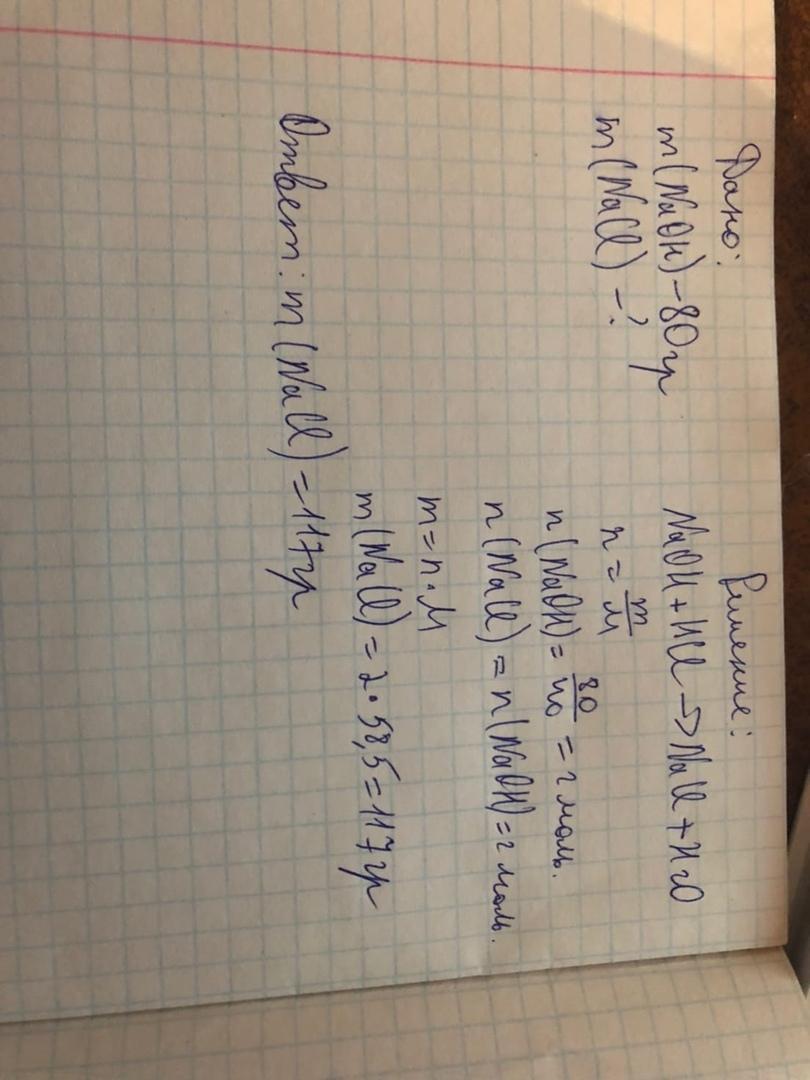 Дано:
m(NaOH)-80гр
m(NaCl)-?
Решение:
NaOH+HCl→NaCl+H2O
n=m/M
n(NaOH)=80/40=2моль.
n(NaCl)=n(NaOH)=2моль.
m=n·M
m(NaCl)=2·58,5=117гр
Ответ: m(NaCl)=117гр